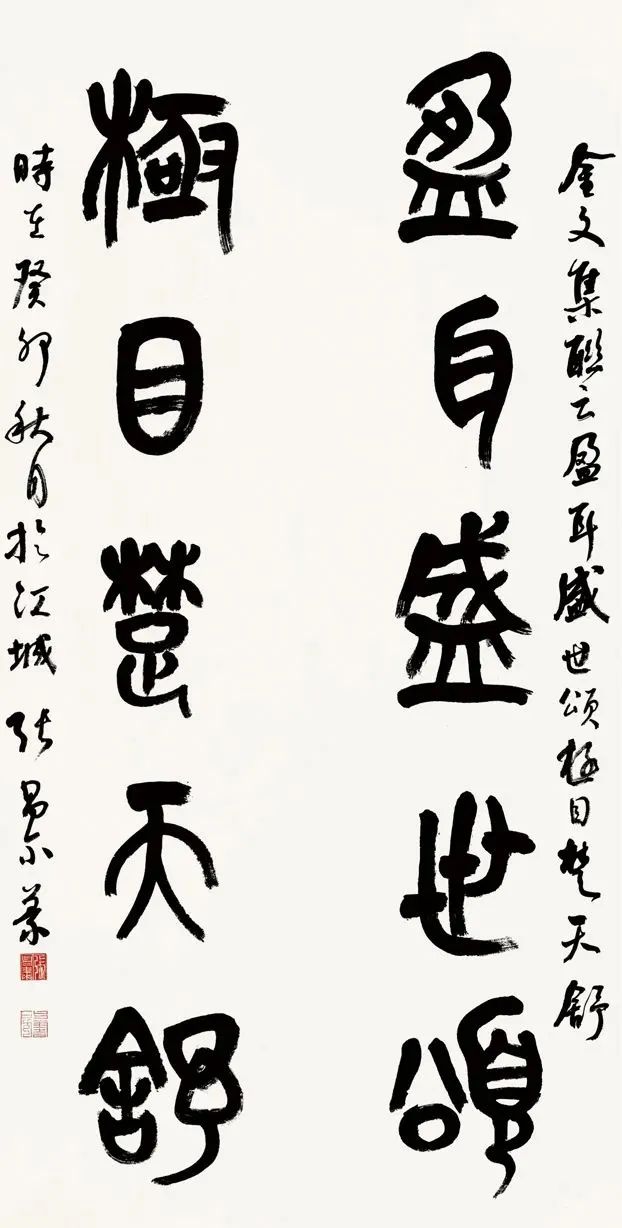 金文集聯云盈耳盛世頌極目楚天舒
盈耳盛世頌
極目楚天舒
時在癸卯秋月於江城張昌尔篆